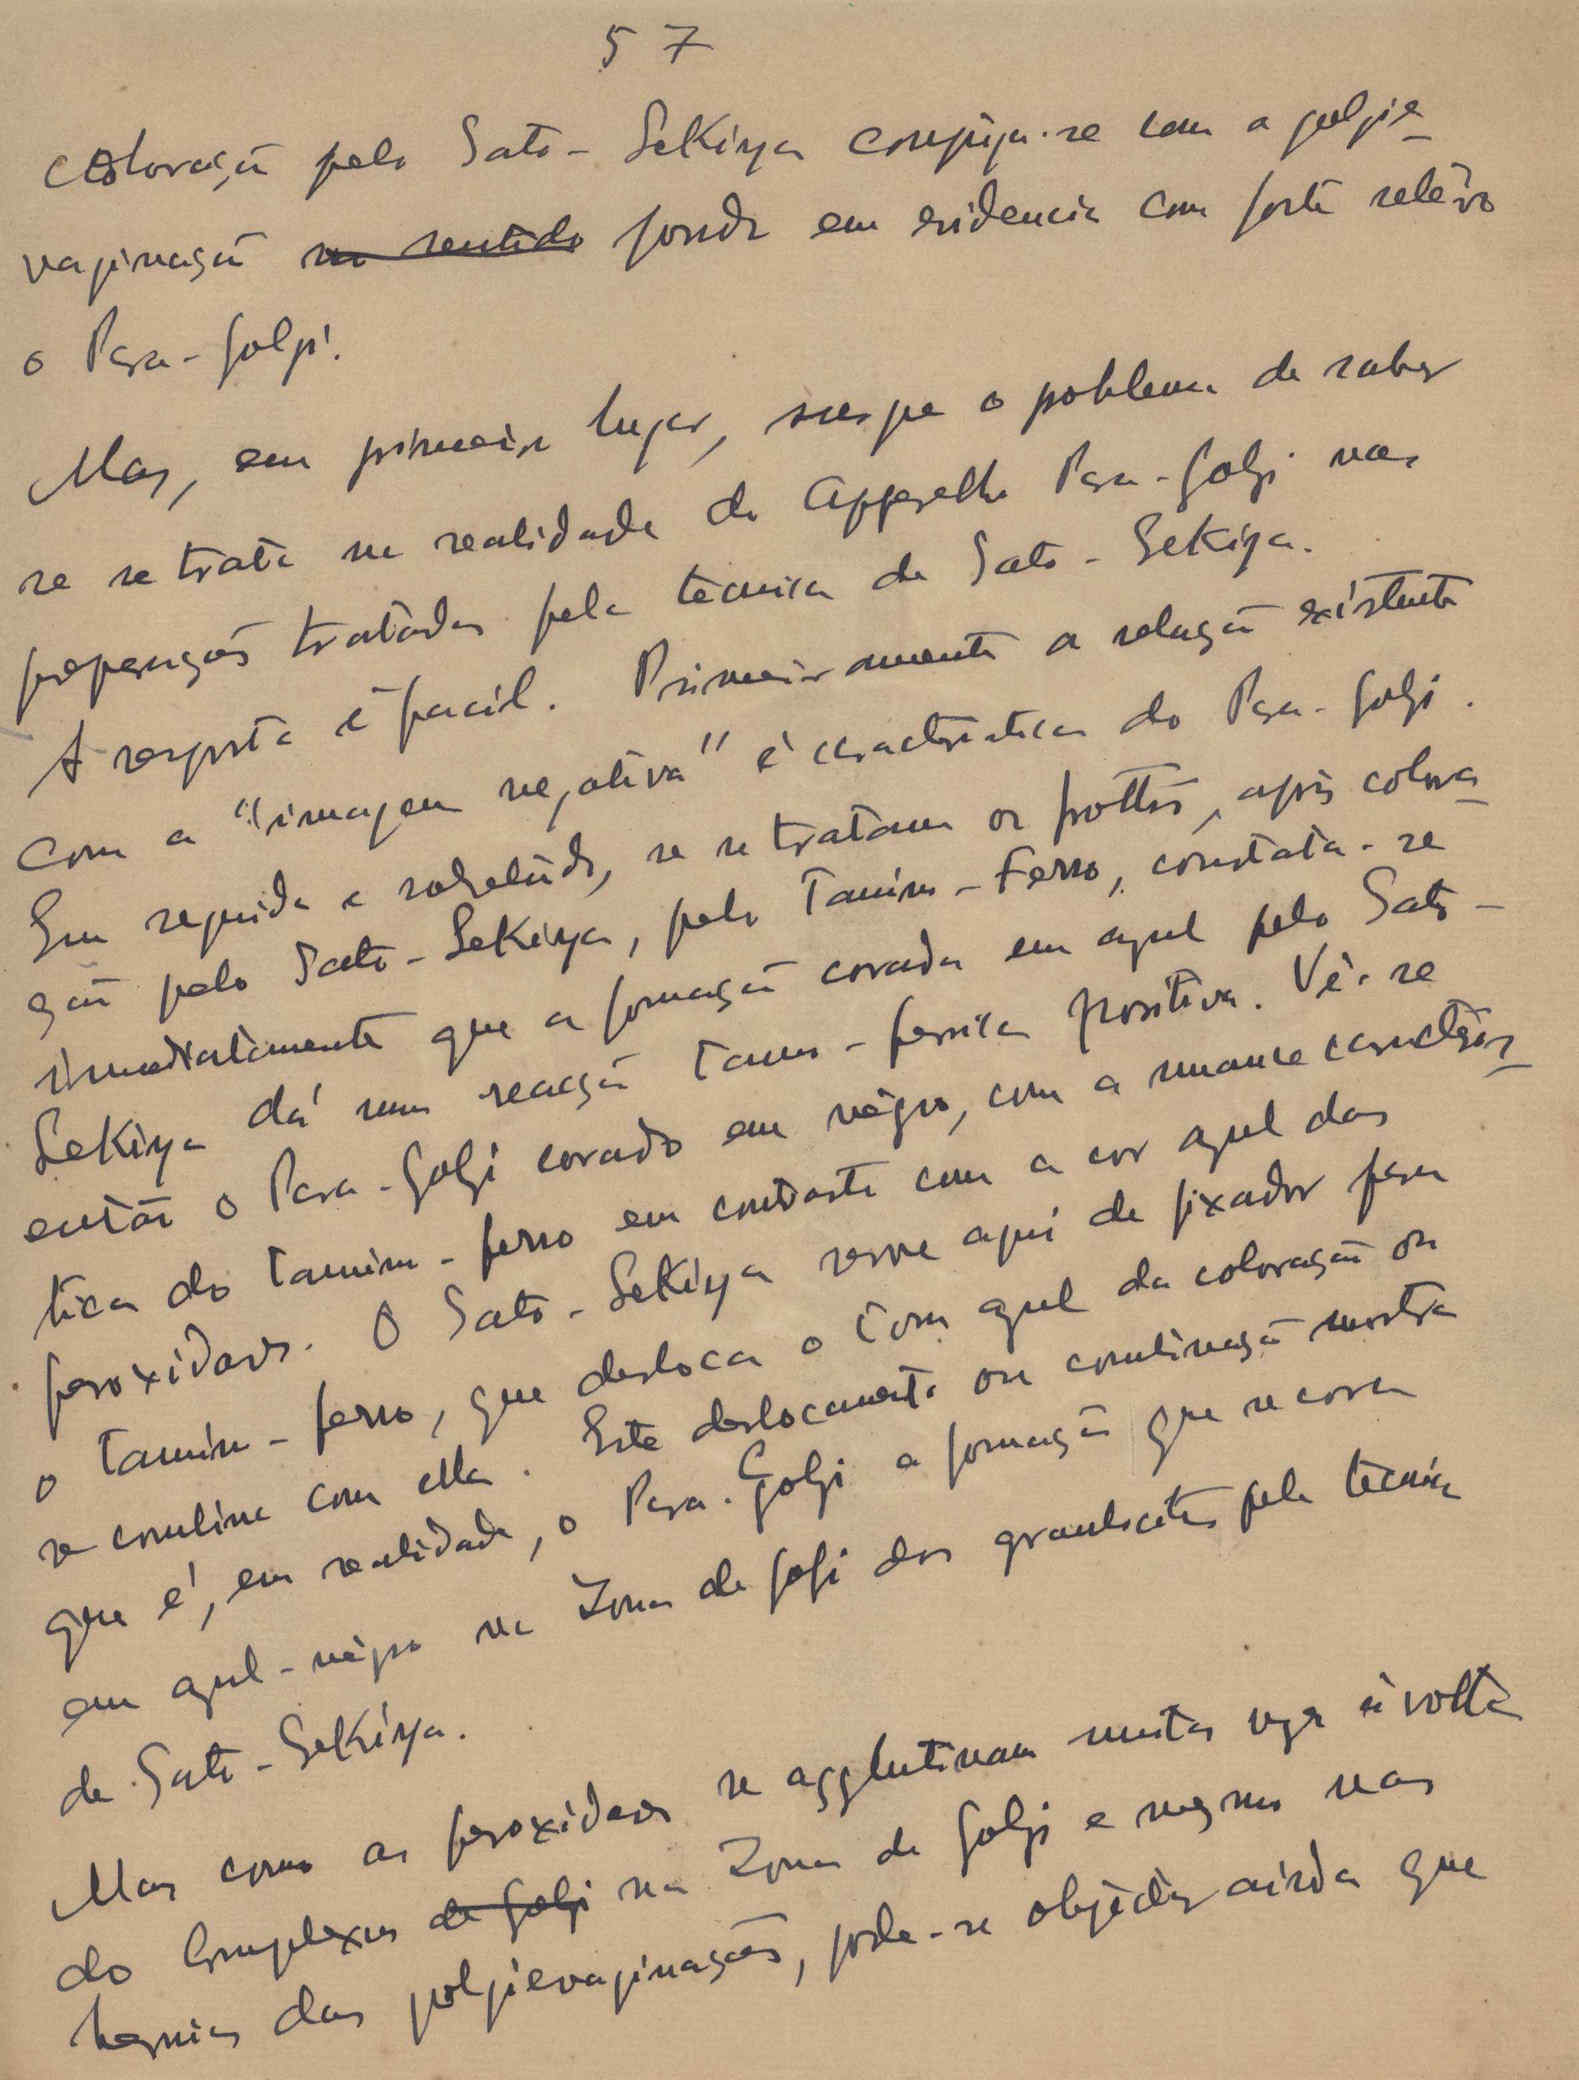 57
coloração pelo Sato-Sekiya conjuga-se com a golgie-
vaginação no sentido pondo em evidencia com forte relêvo
o Para-Golgi.
Mas, em primeiro lugar, surge o problema de saber
se se trata na realidade do Apparelho Para-Golgi nas
preparações tratadas pela tecnica de Sato-Sekiya.
A resposta é facil. Primeiramente a relação existente
com a "imagem negativa" é caracteristica do Para-Golgi.
Em seguida e sobretudo, se se tratam os frottis, após colora-
ção pelo Sato-Sekiya, pelo Tanino-Ferro, constata-se
immediatamente que a formação corada em azul pelo Sato-
Sekiya dá uma reacção tano-ferrica positiva. Vê-se
então o Para-Golgi corado em nêgro, com a nuance caracterís-
tica do tanino-ferro em contraste com a cor azul das
peroxidases. O Sato-Sekiya serve aqui de fixador para
o tanino-ferro, que desloca o tom azul da coloração ou
se combina com ella. Este deslocamento ou combinação mostra
que é, em realidade, o Para-Golgi a formação que se cora
em azul-nêgro na Zona de Golgi dos granulocitos pela tecnica
de Sato-Sekiya.
Mas como as peroxidases se agglutinam muitas vezes á volta
do Complexus de Golgi na Zona de Golgi e mesmo nas
hernias das golgievaginações, pode-se objectar ainda que